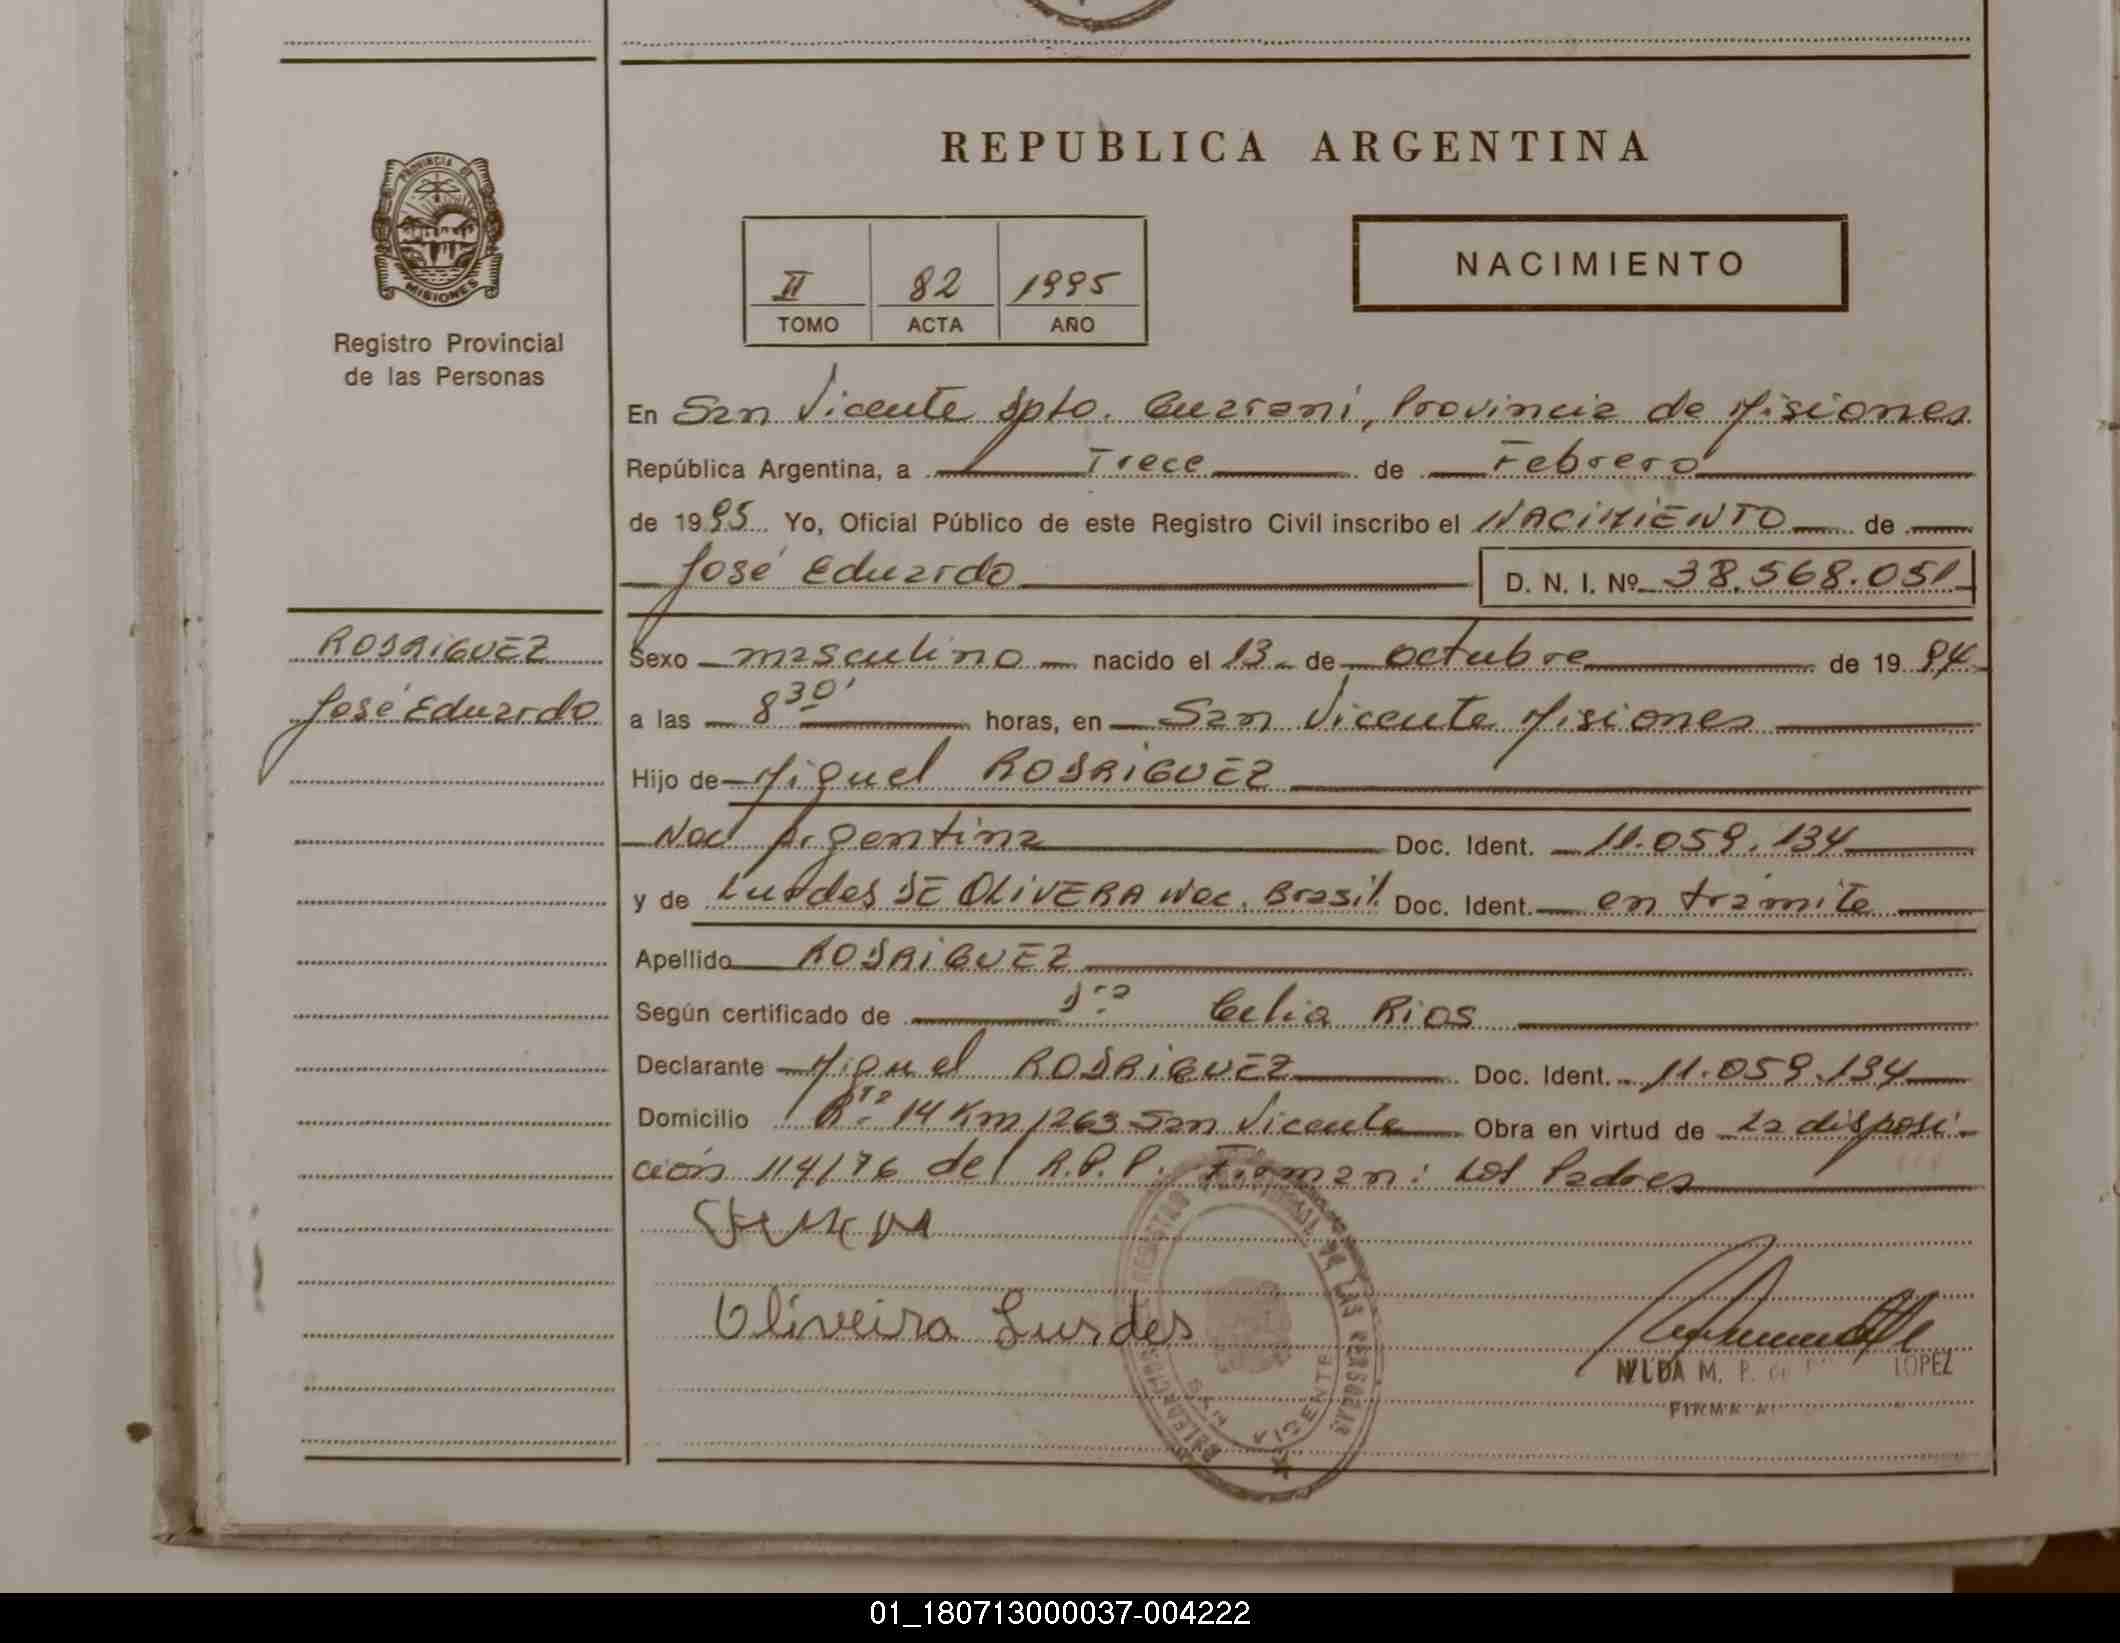 REPUBLICA ARGENTINA
PROVINCIA DE
MISIONES
Registro Provincial
de las Personas
II 82 1995
TOMO ACTA AÑO
NACIMIENTO
En San Vicente Dpto. Guarani, Provincia de Misiones
República Argentina, a Trece de Febrero
de 1995 Yo, Oficial Público de este Registro Civil inscribo el NACIMIENTO de
José Eduardo D. N. I. Nº 38.568.051
RODRIGUEZ
José Eduardo
Sexo masculino nacido el 13 de octubre de 1994
a las 8 30' horas, en San Vicente Misiones
Hijo de Miguel RODRIGUEZ
Nac Argentina Doc. Ident. 11.059.134
y de Lurdes DE OLIVERA Nac. Brasil. Doc. Ident. en trámite
Apellido RODRIGUEZ
Según certificado de Dra Celia Rios
Declarante Miguel RODRIGUEZ Doc. Ident. 11.059.134
Domicilio Rta 14 Km 1263 San Vicente Obra en virtud de la disposi-
ción 114/76 del R.P.P. Firman: los Padres
Oliveira Lurdes
DELEGACION REGISTRO PROVINCIAL DE LAS PERSONAS
SAN VICENTE
NILDA M. P. de LOPEZ
FIRMA
01_180713000037-004222